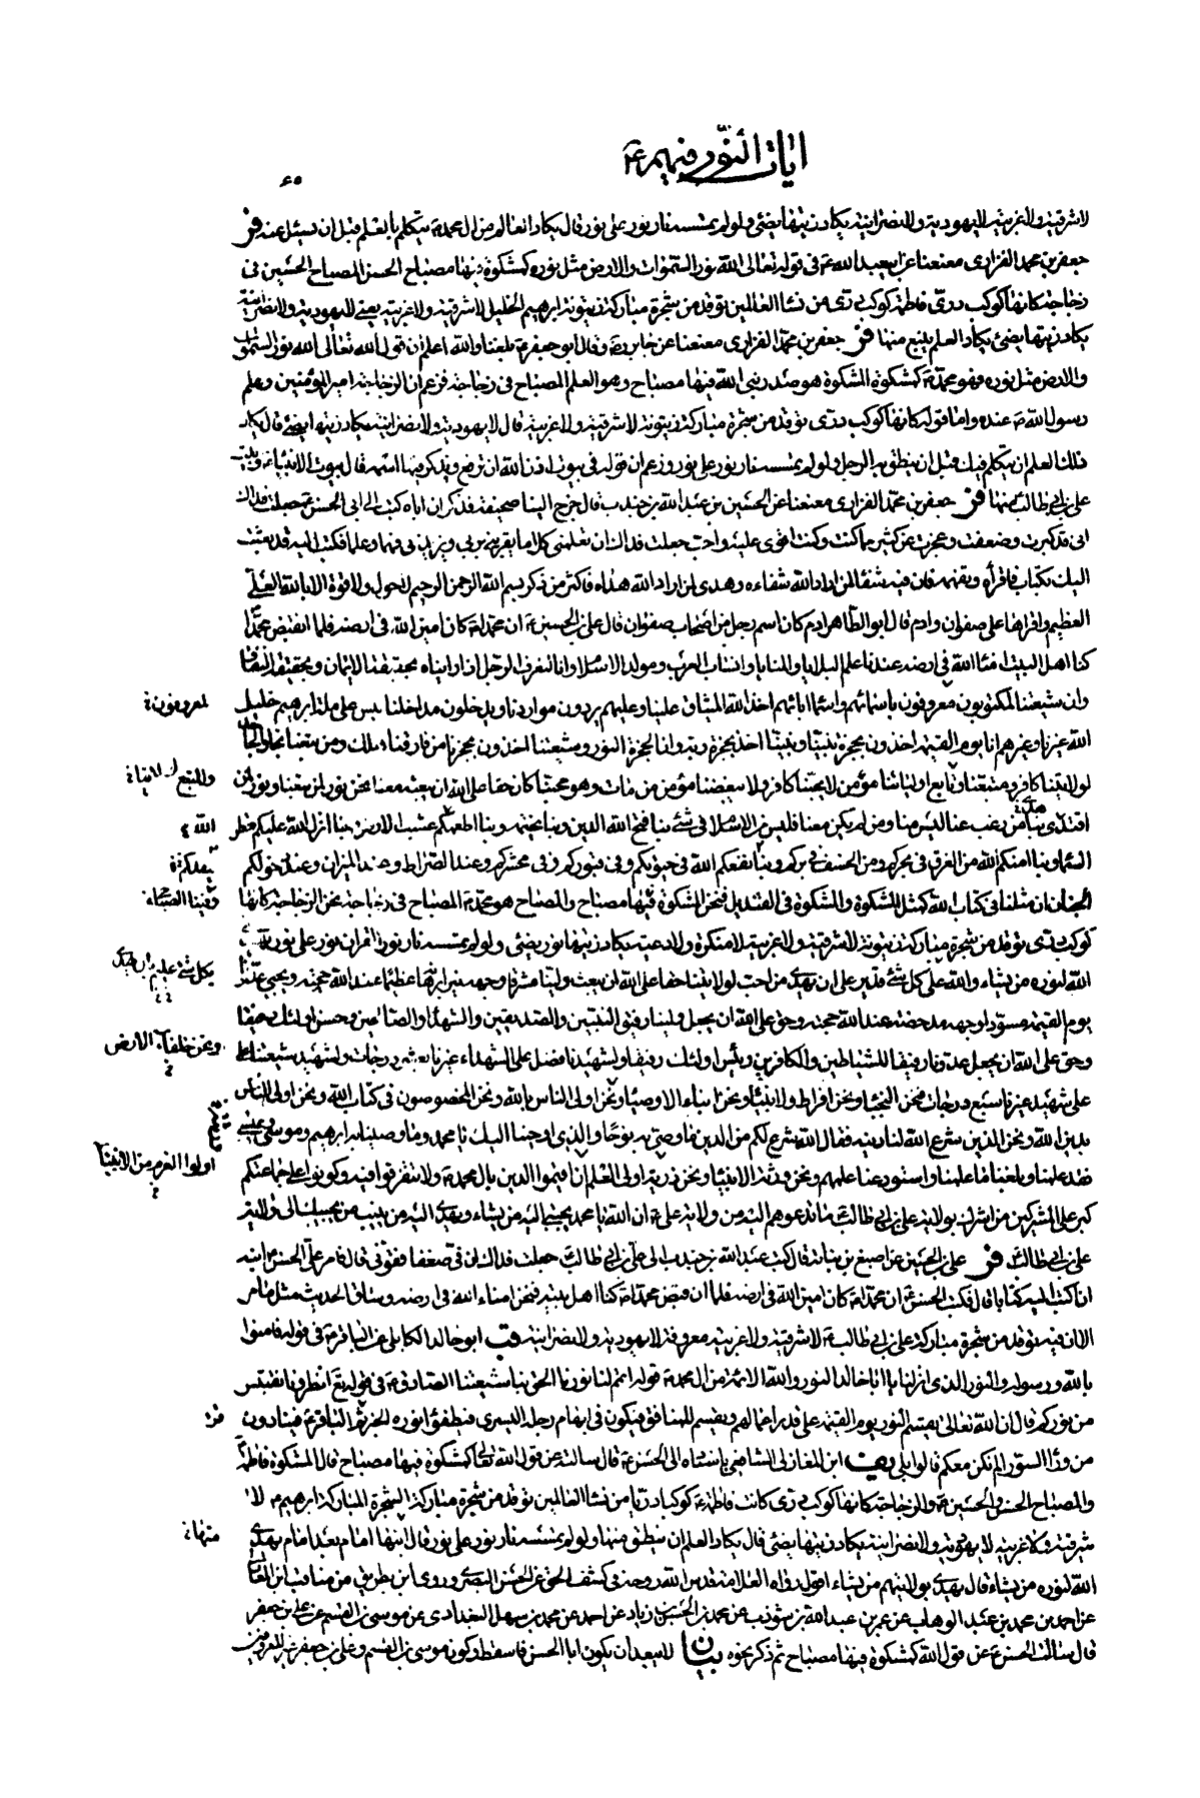 ايات النّور فيهم ع
٦٥
لا شرقية ولا غربية لا يهودية ولا نصرانية يكاد زيتها يضئ ولو لم تمسسه نار نور على نور قال يكاد العالم من ال محمد ص يتكلم بالعلم قبل ان يسئل عنه فر
جعفر بن محمد الفزارى معنعنا عن ابيعبد الله ع فى قوله تعالى الله نور السموات والارض مثل نوره كمشكوة فيها مصباح الحسن المصباح الحسين فى
زجاجة كانها كوكب درّى فاطمة كوكب درى من نساء العالمين توقد من شجرة مباركة زيتونة ابرهيم الخليل لا شرقية ولا غربية يعنى لا يهودية ولا نصرانية
يكاد زيتها يضئ يكاد العلم ينبع منها فر جعفر بن محمد الفزارى معنعنا عن جابر رض قال قال ابو جعفر ع بلغنا والله اعلم ان قول الله تعالى الله نور السموات
والارض مثل نوره فهو محمد ص كمشكوة المشكوة هو صدر نبى الله فيها مصباح وهو العلم المصباح فى زجاجة فزعم ان الزجاجة امير المؤمنين وعلم
رسول الله ص عنده واما قوله كانها كوكب درى توقد من شجرة مباركة زيتونة لا شرقية ولا غربية قال لا يهودية ولا نصرانية يكاد زيتها يضئ قال يكاد
ذلك العلم ان يتكلم فيك قبل ان ينطق به الرجل ولو لم تمسسه نار نور على نور وزعم ان قوله فى بيوت اذن الله ان ترفع ويذكر فيها اسمه قال بيوت الانبياء وبيت
على بن ابى طالب منها فر جعفر بن محمد الفزارى معنعنا عن الحسين بن عبد الله بن جندب قال خرج الينا صحيفة فذكر ان اباه كتب الى ابى الحسن ع جعلت فداك
انى قد كبرت وضعفت وعجزت عن كثير مما كنت اقوى عليه واحب جعلت فداك ان تعلمنى كلاما يقربنى بربى ويزيدنى فهما وعلما فكتب اليه قد بعثت
اليك بكتاب فاقرأه وتفهمه فان فيه شفاء لمن اراد الله شفاءه وهدى لمن اراد الله هداه فاكثر من ذكر بسم الله الرحمن الرحيم لا حول ولا قوة الا بالله العلى
العظيم واقراها على صفوان وادم قال ابو الطاهر ادم كان اسم رجل من اصحاب صفوان قال على بن الحسين ع ان محمدا ص كان امين الله فى ارضه فلما انقبض محمدا
كنا اهل البيت امناء الله فى ارضه عندنا علم البلايا والمنايا وانساب العرب ومولد الاسلام وانا لنعرف الرجل اذا رايناه بحقيقة الايمان وبحقيقة النفاق
وان شيعتنا لمكتوبون معروفون باسمائهم واسماء ابائهم اخذ الله الميثاق علينا وعليهم يردون مواردنا ويدخلون مداخلنا ليس على ملة ابرهيم خليل
الله غيرنا وغيرهم انا يوم القيمة اخذون بحجزة نبينا ونبينا اخذ بحجزة ربه وانا الحجزة النور وشيعتنا اخذون بحجزنا من فارقنا هلك ومن تبعنا نجا والجاحد
لولايتنا كافر ومتبعنا وتابع اوليائنا مؤمن لا يحبنا كافر ولا يبغضنا مؤمن من مات وهو محبنا كان حقا على الله ان يبعثه معنا نحن نور لمن تبعنا ونور لمن
اقتدى بنا من رغب عنا ليس منا ومن لم يكن معنا فليس من الاسلام فى شئ بنا فتح الله الدين وبنا يختمه وبنا اطعمكم عشب الارض بنا انزل الله عليكم قطر
السماء وبنا امنكم الله من الغرق فى بحركم ومن الخسف فى بركم وبنا نفعكم الله فى حيوتكم وفى قبوركم وفى محشركم وعند الصراط وعند الميزان وعند دخولكم
الجنان ان مثلنا فى كتاب الله كمثل المشكوة والمشكوة فى القنديل فنحن المشكوة فيها مصباح والمصباح هو محمد ص المصباح فى زجاجة نحن الزجاجة كانها
كوكب درى توقد من شجرة مباركة زيتونة لا شرقية ولا غربية لا منكرة ولا دعية يكاد زيتها نور يضئ ولو لم تمسسه نار نور القران نور على نور يهدى
الله لنوره من يشاء والله على كل شئ قدير على ان يهدى من احب لولايتنا حقا على الله ان يبعث ولينا مشرقا وجهه نيرا برهانه عظيما عند الله حجته ويجئ عدونا
يوم القيمة مسودا وجهه مدحضة عند الله حجته وحق على الله ان يجعل ولينا رفيق النبيين والصديقين والشهداء والصالحين وحسن اولئك رفيقا
وحق على الله ان يجعل عدونا رفيقا للشياطين والكافرين وبئس اولئك رفيقا ولشهيدنا فضل على الشهداء غيرنا بعشر درجات ولشهيد شيعتنا
على شهيد غيرنا سبع درجات فنحن النجباء ونحن افراط الانبياء ونحن ابناء الاوصياء ونحن اولى الناس بالله ونحن المخصوصون فى كتاب الله ونحن اولى الناس
بدين الله ونحن الذين شرع الله لنا دينه فقال الله شرع لكم من الدين ما وصى به نوحا والذى اوحينا اليك يا محمد وما وصينا به ابرهيم وموسى وعيسى
فقد علمنا وبلغنا ما علمنا واستودعنا علمهم ونحن ورثة الانبياء ونحن ذرية اولى العلم ان اقيموا الدين بال محمد ص ولا تتفرقوا فيه وكونوا على جماعتكم
كبر على المشركين من اشرك بولاية على بن ابى طالب ما تدعوهم اليه من ولاية على ع ان الله يا محمد يجتبى اليه من يشاء ويهدى اليه من ينيب من يجيبك الى ولاية
على بن ابى طالب ع فر على بن الحسين عن اصبغ بن نباتة قال كتب عبد الله بن جندب الى على بن ابى طالب جعلت فداك ان فى ضعفا فقونى قال فامر على الحسن ابنه
ان اكتب اليه كتابا قال فكتب الحسن ع ان محمدا ص كان امين الله فى ارضه فلما ان قبض محمدا ص كنا اهل بيته فنحن امناء الله فى ارضه وساق الحديث مثل ما مر
الا ان فيه توقد من شجرة مباركة على بن ابى طالب ع لا شرقية ولا غربية معروفة لا يهودية ولا نصرانية قب ابو خالد الكابلى عن الباقر ع فى قوله فامنوا
بالله ورسوله والنور الذى انزلنا يا ابا خالد النور والله الائمة من ال محمد ص قوله اتمم لنا نورنا الحق بنا شيعتنا الصادق ع فى قوله تع انظرونا نقتبس
من نوركم قال ان الله تعالى يقسم النور يوم القيمة على قدر اعمالهم ويقسم للمنافق فيكون فى ابهام رجله اليسرى فيطفؤ نوره الخبر الباقر ع فينادون
من وراء السور الم نكن معكم قالوا بلى يف ابن المغازلى الشافعى باسناده الى الحسن ع قال سالته عن قول الله تعالى كمشكوة فيها مصباح قال المشكوة فاطمة
والمصباح الحسن والحسين ع والزجاجة كانها كوكب درى كانت فاطمة ع كوكبا دريا من نساء العالمين توقد من شجرة مباركة الشجرة المباركة ابرهيم ع لا
شرقية ولا غربية لا يهودية ولا نصرانية يكاد زيتها يضئ قال يكاد العلم ان ينطق منها ولو لم تمسسه نار نور على نور قال ابنها امام بعد امام يهدى
الله لنوره من يشاء قال يهدى بولايتهم من يشاء اقول رواه العلامة قدس الله روحه فى كشف الحق عن الحسن البصرى وروى ابن بطريق من مناقب ابن المغازلى
عن احمد بن محمد بن عبد الوهاب عن عمر بن عبد الله بن شوذب عن محمد بن الحسن بن زياد عن احمد عن محمد بن سهل البغدادى عن موسى بن القسم عن على بن جعفر
قال سالت الحسن ع عن قول الله كمشكوة فيها مصباح ثم ذكر نحوه بيان لا يبعد ان يكون ابا الحسن فاسقط وكون موسى بن القسم وعلى بن جعفر غير المعروفين
لمعروفون
والمتبع
الله
بعدكم
وفينا المصباح
بكل شئ عليم
ونحن خلفاء الارض
اولوا العزم من الانبياء
فر
منها